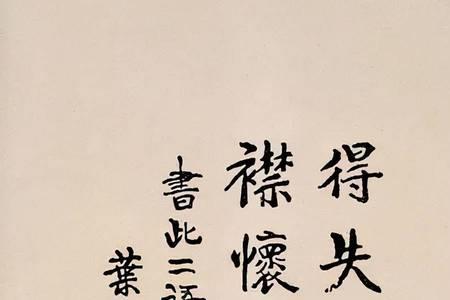 得失
襟懷
書此二語
葉